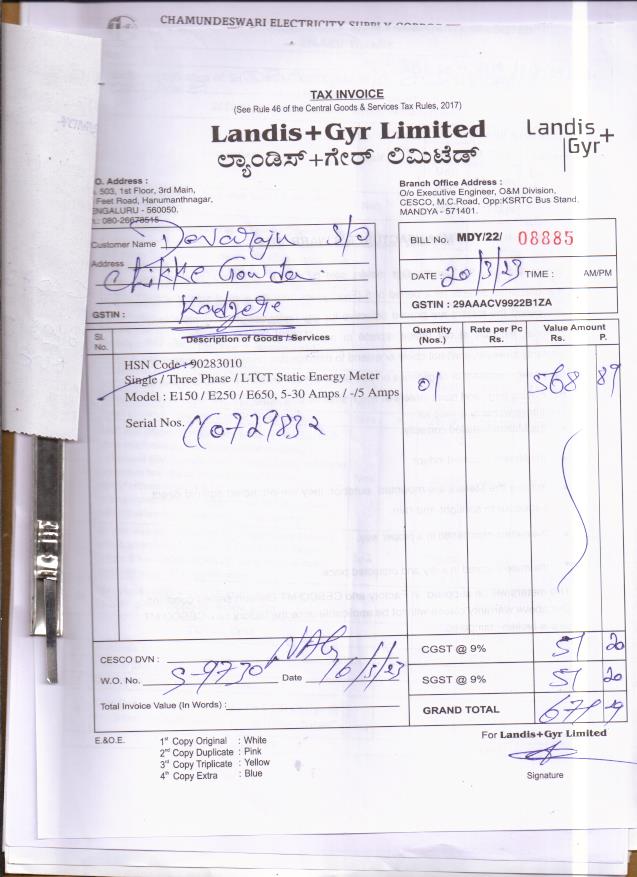 CHAMUNDESWARI ELECTRICITY SUPPLY
TAX INVOICE
(See Rule 46 of the Central Goods & Services Tax Rules, 2017)
Landis+Gyr Limited
ಲ್ಯಾಂಡಿಸ್+ಗೇರ್ ಲಿಮಿಟೆಡ್
Landis+
Gyr
O. Address :
503, 1st Floor, 3rd Main,
Feet Road, Hanumanthnagar,
ENGALURU - 560050.
.: 080-26678515
Branch Office Address :
O/o Executive Engineer, O&M Division,
CESCO, M.C.Road, Opp:KSRTC Bus Stand.
MANDYA - 571401.
Customer Name Devaraju S/o
Address Chikke Gowda.
GSTIN :
BILL No. MDY/22/ 08885
DATE : 20/3/23 TIME : AM/PM
GSTIN : 29AAACV9922B1ZA
Sl. No. Description of Goods / Services Quantity (Nos.) Rate per Pc Rs. Value Amount Rs. P.
HSN Code : 90283010
Single / Three Phase / LTCT Static Energy Meter 01 568 89
Model : E150 / E250 / E650, 5-30 Amps / -/5 Amps
Serial Nos.
CESCO DVN :
W.O. No. S-9730 Date 16/3/23
Total Invoice Value (In Words) :
CGST @ 9% 51 20
SGST @ 9% 51 20
GRAND TOTAL 671 29
E.&O.E.
1st Copy Original : White
2nd Copy Duplicate : Pink
3rd Copy Triplicate : Yellow
4th Copy Extra : Blue
For Landis+Gyr Limited
Signature